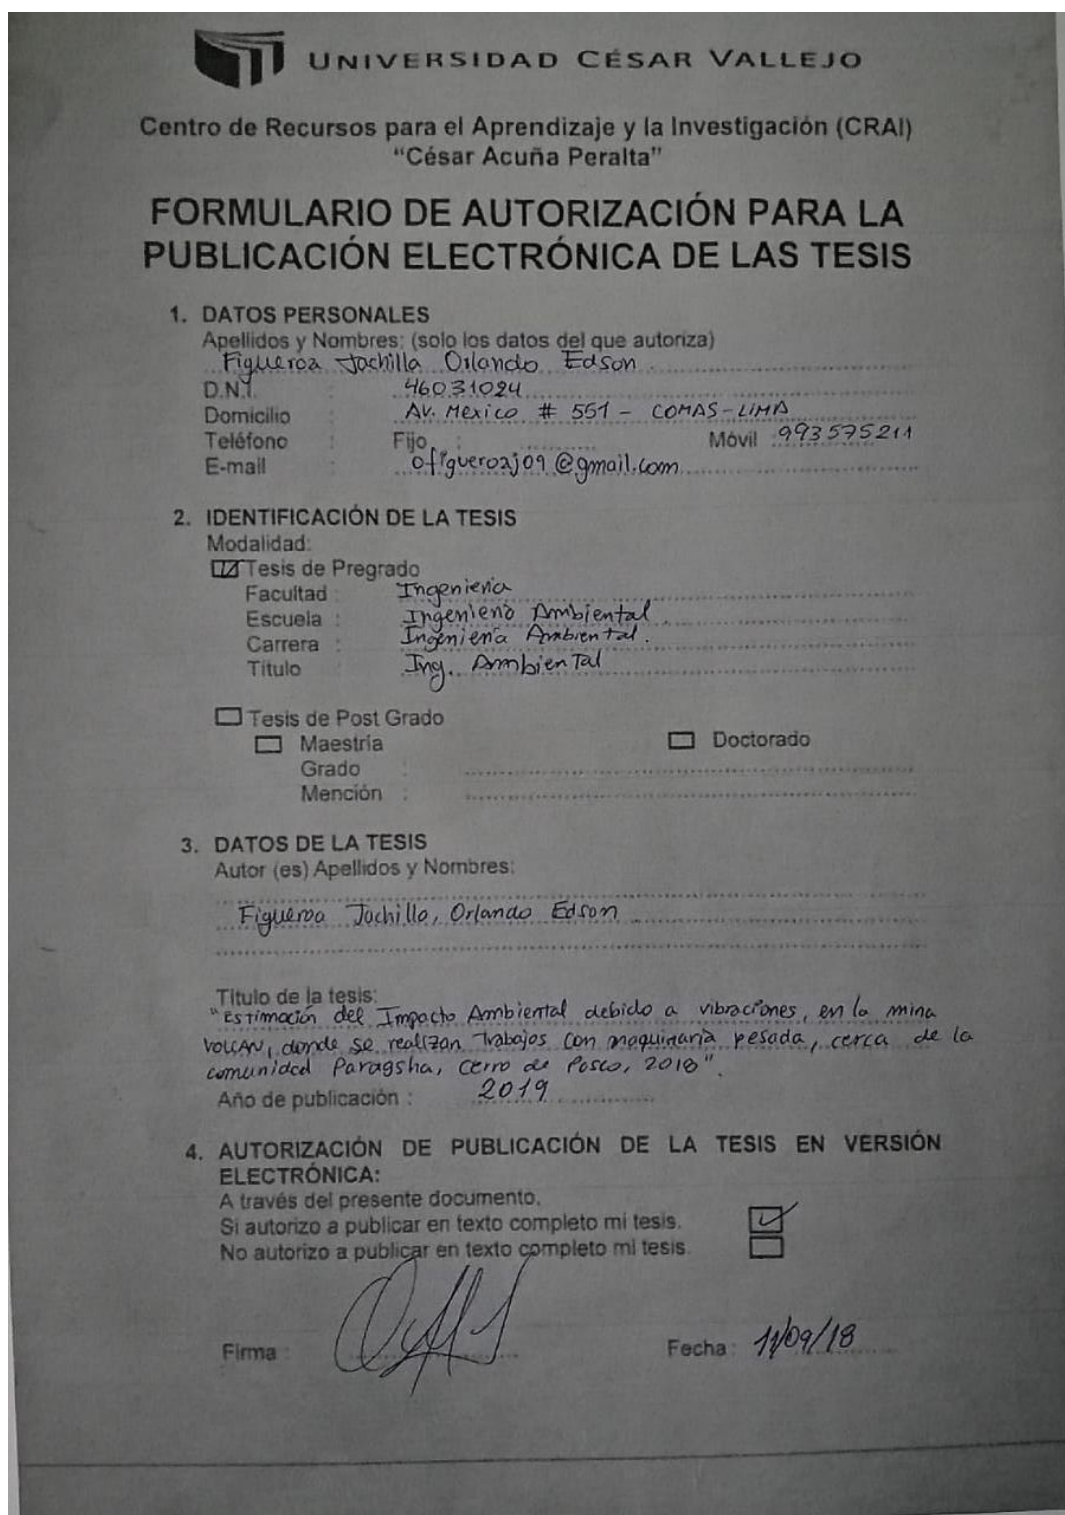 UNIVERSIDAD CÉSAR VALLEJO
Centro de Recursos para el Aprendizaje y la Investigación (CRAI)
“César Acuña Peralta”
FORMULARIO DE AUTORIZACIÓN PARA LA
PUBLICACIÓN ELECTRÓNICA DE LAS TESIS
1. DATOS PERSONALES
Apellidos y Nombres: (solo los datos del que autoriza)
Figueroa Jachilla Orlando Edson
D.N.I. : 46031024
Domicilio : Av. Mexico # 551 - COMAS-LIMA
Teléfono : Fijo : Móvil : 993575211
E-mail : ofigueroaj09@gmail.com
2. IDENTIFICACIÓN DE LA TESIS
Modalidad:
Tesis de Pregrado
Facultad : Ingenieria
Escuela : Ingenieria Ambiental.
Carrera : Ingenieria Ambiental.
Título : Ing. Ambiental
Tesis de Post Grado
Maestría Doctorado
Grado :
Mención :
3. DATOS DE LA TESIS
Autor (es) Apellidos y Nombres:
Figueroa Jachilla, Orlando Edson
Título de la tesis:
"Estimación del Impacto Ambiental debido a vibraciones, en la mina
VOLCAN, donde se realizan Trabajos con maquinaria pesada, cerca de la
comunidad Paragsha, Cerro de Pasco, 2018".
Año de publicación : 2019
4. AUTORIZACIÓN DE PUBLICACIÓN DE LA TESIS EN VERSIÓN
ELECTRÓNICA:
A través del presente documento,
Si autorizo a publicar en texto completo mi tesis.
No autorizo a publicar en texto completo mi tesis.
Firma : Fecha : 11/09/18